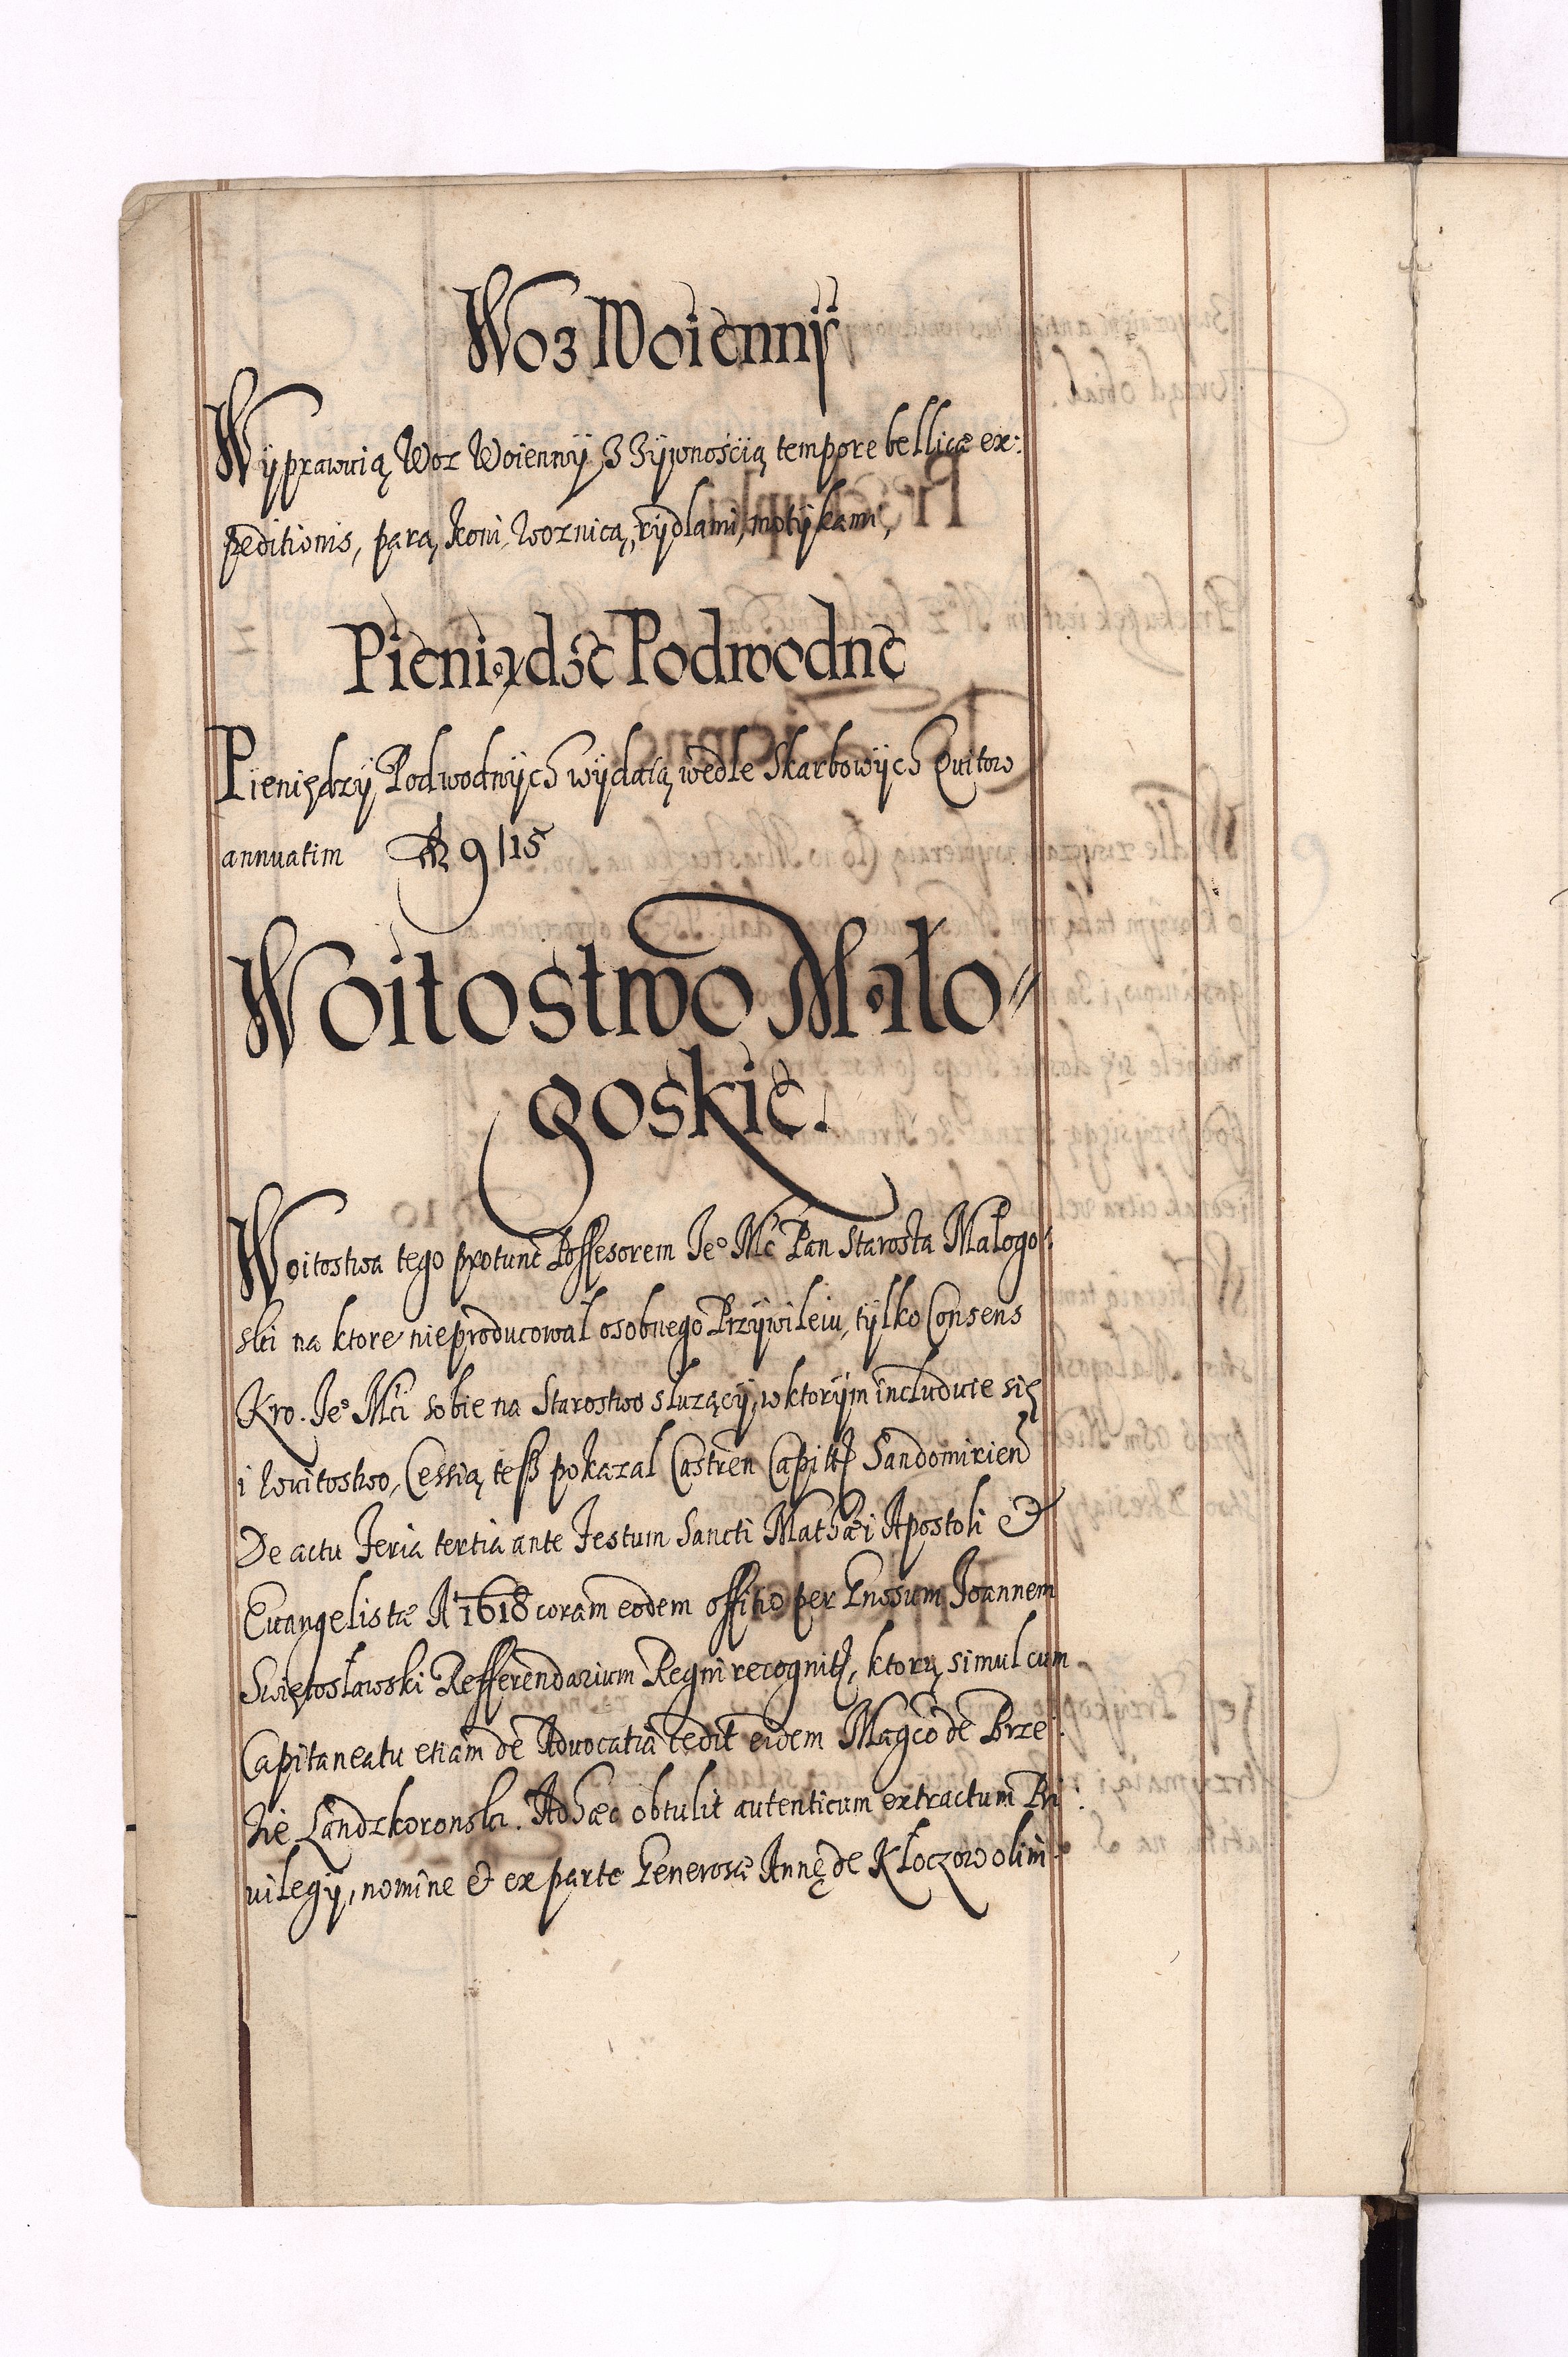 Woz Woienny
Wyprawuią Woz Woienny z zywnoscią tempore bellicæ ex:
peditionis, parą koni, woznicą, rydlami, motykami,
Pieniądze Podwodne
Pieniędzy Podwodnych wydaią wedle Skarbowych Quitow
annuatim fl 9/15
Woitostwo Mało=
goskie.
Woitostwa tego protunc Possesorem Ie° Mc Pan Starosta Małogo:
ski na ktore nieproducowal osobnego Przywileiu, tylko Consens
Kro. Ie° Mci sobie na Starostwo sluzący, w ktorym includuie się
i woitostwo, Cessią tesz pokazal Castren Capitt Sandomirien
De actu Feria tertia ante Festum Sancti Mathæi Apostoli &
Euangelistæ A° 1618 coram eodem offitio per Gnosum Joannem
Swiętosławski Refferendarium Regni recognit, ktorą simul cum
Capitaneatu etiam de Aduocatia cedit eidem Magco de Brze:
zie Landzkoronski. Adhæc obtulit autenticum extractum Pri:
uilegij, nomine & ex parte Generosæ Annę de Kloczow olim